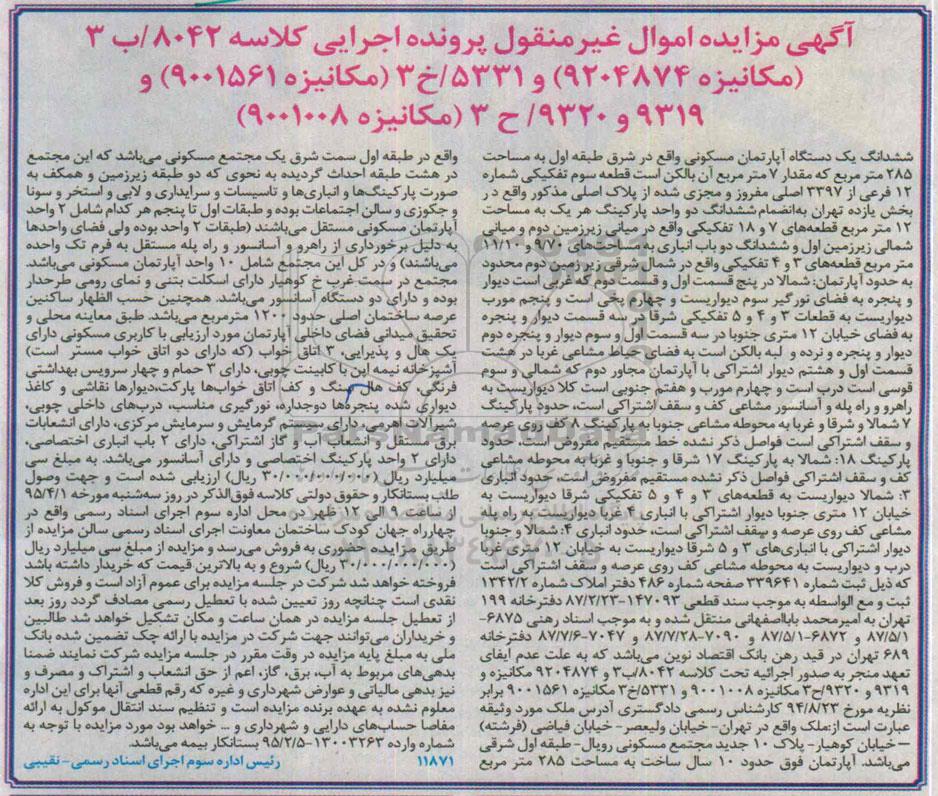 آگهی مزایده اموال غیرمنقول پرونده اجرایی کلاسه ۸۰۴۲/ب ۳
(مکانیزه ۹۲۰۴۸۷۴) و ۵۳۳۱/خ۳ (مکانیزه ۹۰۰۱۵۶۱) و
۹۳۱۹ و ۹۳۲۰/ ح ۳ (مکانیزه ۹۰۰۱۰۰۸)
ششدانگ یک دستگاه آپارتمان مسکونی واقع در شرق طبقه اول به مساحت
۲۸۵ متر مربع که مقدار ۷ متر مربع آن بالکن است قطعه سوم تفکیکی شماره
۱۲ فرعی از ۳۳۹۷ اصلی مفروز و مجزی شده از پلاک اصلی مذکور واقع در
بخش یازده تهران به‌انضمام ششدانگ دو واحد پارکینگ هر یک به مساحت
۱۲ متر مربع قطعه‌های ۷ و ۱۸ تفکیکی واقع در میانی زیرزمین دوم و میانی
شمالی زیرزمین اول و ششدانگ دو باب انباری به مساحت‌های ۹/۷۰ و ۱۱/۱۰
متر مربع قطعه‌های ۳ و ۴ تفکیکی واقع در شمال شرقی زیرزمین دوم محدود
به حدود آپارتمان: شمالا در پنج قسمت اول و قسمت دوم که غربی است دیوار
و پنجره به فضای نورگیر سوم دیواریست و چهارم پخی است و پنجم مورب
دیواریست به قطعات ۳ و ۴ و ۵ تفکیکی شرقا در سه قسمت دیوار و پنجره
به فضای خیابان ۱۲ متری جنوبا در سه قسمت اول و سوم دیوار و پنجره دوم
دیوار و پنجره و نرده و لبه بالکن است به فضای حیاط مشاعی غربا در هشت
قسمت اول و هشتم دیوار اشتراکی با آپارتمان مجاور دوم که شمالی و سوم
قوسی است درب است و چهارم مورب و هفتم جنوبی است کلا دیواریست به
راهرو و راه پله و آسانسور مشاعی کف و سقف اشتراکی است، حدود پارکینگ
۷ شمالا و شرقا و غربا به محوطه مشاعی جنوبا به پارکینگ ۸ کف روی عرصه
و سقف اشتراکی است فواصل ذکر نشده خط مستقیم مفروض است حدود
پارکینگ ۱۸: شمالا به پارکینگ ۱۷ شرقا و جنوبا و غربا به محوطه مشاعی
کف و سقف اشتراکی فواصل ذکر نشده مستقیم مفروض است، حدود انباری
۳: شمالا دیواریست به قطعه‌های ۳ و ۴ و ۵ تفکیکی شرقا دیواریست به
خیابان ۱۲ متری جنوبا دیوار اشتراکی با انباری ۴ غربا دیواریست به راه پله
مشاعی کف روی عرصه و سقف اشتراکی است، حدود انباری ۴: شمالا و جنوبا
دیوار اشتراکی با انباری‌های ۳ و ۵ شرقا دیواریست به خیابان ۱۲ متری غربا
درب و دیواریست به محوطه مشاعی کف روی عرصه و سقف اشتراکی است
که ذیل ثبت شماره ۳۳۹۶۴۱ صفحه شماره ۴۸۶ دفتر املاک شماره ۱۳۴۲/۲
ثبت و مع الواسطه به موجب سند قطعی ۱۴۷۰۹۳-۸۷/۲/۲۳ دفترخانه ۱۹۹
تهران به امیرمحمد بابااصفهانی منتقل شده و به موجب اسناد رهنی ۶۸۷۵-
۸۷/۵/۱ و ۶۸۷۲-۸۷/۵/۱ و ۷۰۹۰-۸۷/۷/۲۸ و ۷۰۴۷-۸۷/۷/۶ دفترخانه
۶۸۹ تهران در قید رهن بانک اقتصاد نوین می‌باشد که به علت عدم ایفای
تعهد منجر به صدور اجرائیه تحت کلاسه ۸۰۴۲/ب۳ و ۹۲۰۴۸۷۴ مکانیزه و
۹۳۱۹ و ۹۳۲۰/ح۳ مکانیزه ۹۰۰۱۰۰۸ و ۵۳۳۱/خ۳ مکانیزه ۹۰۰۱۵۶۱ برابر
نظریه مورخ ۹۴/۸/۲۳ کارشناس رسمی دادگستری آدرس ملک مورد وثیقه
عبارت است از:ملک واقع در تهران- خیابان ولیعصر- خیابان فیاضی (فرشته)
–خیابان کوهیار- پلاک ۱۰ جدید مجتمع مسکونی رویال- طبقه اول شرقی
می‌باشد. آپارتمان فوق حدود ۱۰ سال ساخت به مساحت ۲۸۵ متر مربع
واقع در طبقه اول سمت شرق یک مجتمع مسکونی می‌باشد که این مجتمع
در هشت طبقه احداث گردیده به نحوی که دو طبقه زیرزمین و همکف به
صورت پارکینگ‌ها و انباری‌ها و تاسیسات و سرایداری و لابی و استخر و سونا
و جکوزی و سالن اجتماعات بوده و طبقات اول تا پنجم هر کدام شامل ۲ واحد
آپارتمان مسکونی مستقل می‌باشند (طبقات ۲ واحد بوده ولی فضای واحدها
به دلیل برخورداری از راهرو و آسانسور و راه پله مستقل به فرم تک واحده
می‌باشند) و در کل این مجتمع شامل ۱۰ واحد آپارتمان مسکونی می‌باشد.
مجتمع در سمت غرب خ کوهیار دارای اسکلت بتنی و نمای رومی طرحدار
بوده و دارای دو دستگاه آسانسور می‌باشد. همچنین حسب الظهار ساکنین
عرصه ساختمان اصلی حدود ۱۲۰۰ مترمربع می‌باشد. طبق معاینه محلی و
تحقیق میدانی فضای داخلی آپارتمان مورد ارزیابی با کاربری مسکونی دارای
یک هال و پذیرایی، ۳ اتاق خواب (که دارای دو اتاق خواب مستر است)
آشپزخانه نیمه اپن با کابینت چوبی، دارای ۳ حمام و چهار سرویس بهداشتی
فرنگی، کف هال سنگ و کف اتاق خواب‌ها پارکت،دیوارها نقاشی و کاغذ
دیواری شده پنجره‌ها دوجداره، نورگیری مناسب، درب‌های داخلی چوبی،
شیرآلات اهرمی، دارای سیستم گرمایش و سرمایش مرکزی، دارای انشعابات
برق مستقل و انشعاب آب و گاز اشتراکی، دارای ۲ باب انباری اختصاصی،
دارای ۲ واحد پارکینگ اختصاصی و دارای آسانسور می‌باشد. به مبلغ سی
میلیارد ریال (۳۰/۰۰۰/۰۰۰/۰۰۰ ریال) ارزیابی شده است و جهت وصول
طلب بستانکار و حقوق دولتی کلاسه فوق‌الذکر در روز سه‌شنبه مورخه ۹۵/۴/۱
از ساعت ۹ الی ۱۲ ظهر در محل اداره سوم اجرای اسناد رسمی واقع در
چهارراه جهان کودک ساختمان معاونت اجرای اسناد رسمی سالن مزایده از
طریق مزایده حضوری به فروش می‌رسد و مزایده از مبلغ سی میلیارد ریال
(۳۰/۰۰۰/۰۰۰/۰۰۰ ریال) شروع و به بالاترین قیمت که خریدار داشته باشد
فروخته خواهد شد شرکت در جلسه مزایده برای عموم آزاد است و فروش کلا
نقدی است چنانچه روز تعیین شده با تعطیل رسمی مصادف گردد روز بعد
از تعطیل جلسه مزایده در همان ساعت و مکان تشکیل خواهد شد طالبین
و خریداران می‌توانند جهت شرکت در مزایده با ارائه چک تضمین شده بانک
ملی به مبلغ پایه مزایده در وقت مقرر در جلسه مزایده شرکت نمایند ضمنا
بدهی‌های مربوط به آب، برق، گاز، اعم از حق انشعاب و اشتراک و مصرف و
نیز بدهی مالیاتی و عوارض شهرداری و غیره که رقم قطعی آنها برای این اداره
معلوم نشده به عهده برنده مزایده است و تنظیم سند انتقال موکول به ارائه
مفاصا حساب‌های دارایی و شهرداری و ... خواهد بود مورد مزایده با توجه به
شماره وارده ۱۳۰۰۳۲۶۳-۹۵/۲/۵ بستانکار بیمه می‌باشد.
۱۱۸۷۱ رئیس اداره سوم اجرای اسناد رسمی- نقیبی